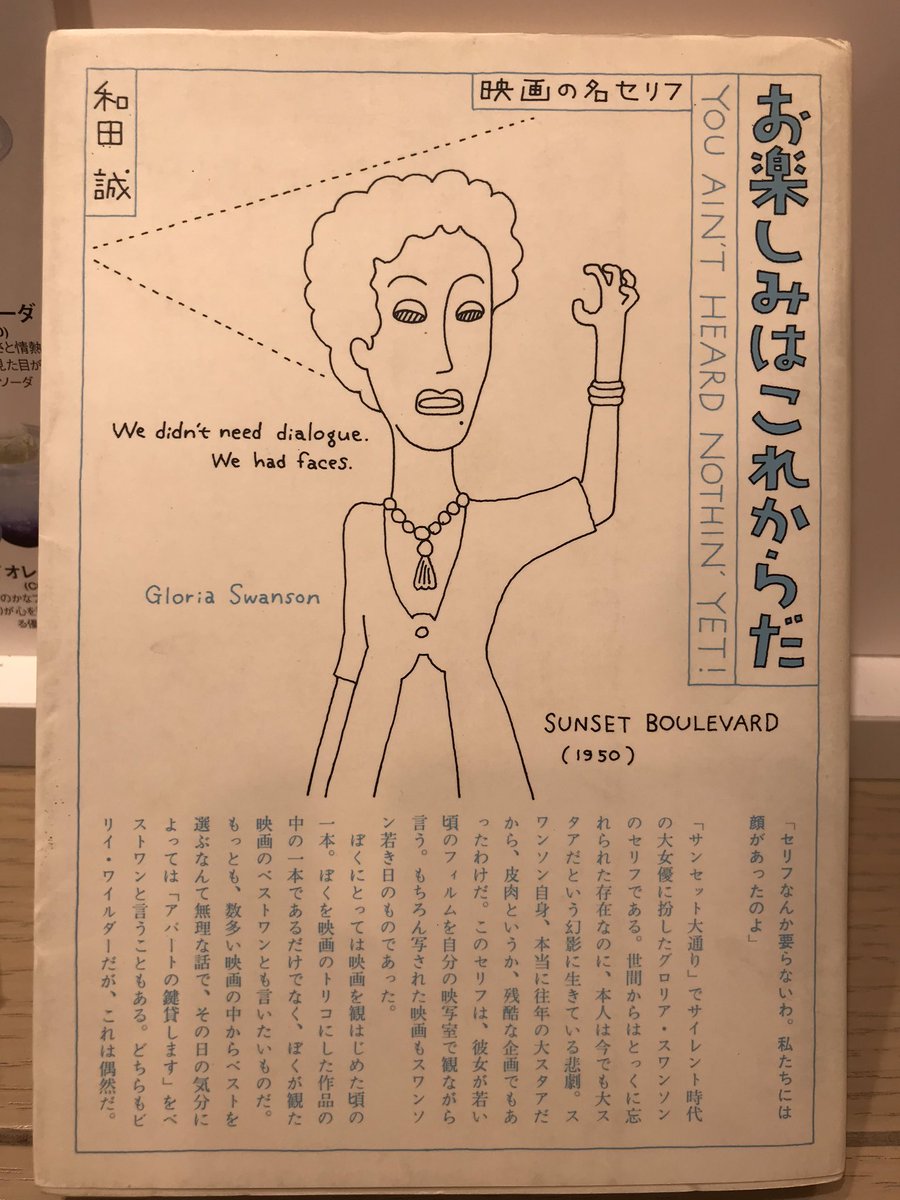 お楽しみはこれからだ
YOU AIN'T HEARD NOTHIN' YET!
映画の名セリフ
和田 誠
We didn't need dialogue.
We had faces.
Gloria Swanson
SUNSET BOULEVARD
(1950)
「セリフなんか要らないわ。私たちには
顔があったのよ」
「サンセット大通り」でサイレント時代
の大女優に扮したグロリア・スワンソン
のセリフである。世間からはとっくに忘
れられた存在なのに、本人は今でも大ス
タアだという幻影に生きている悲劇。ス
ワンソン自身、本当に往年の大スタアだ
から、皮肉というか、残酷な企画でもあ
ったわけだ。このセリフは、彼女が若い
頃のフィルムを自分の映写室で観ながら
言う。もちろん写された映画もスワンソ
ン若き日のものであった。
ぼくにとっては映画を観はじめた頃の
一本。ぼくを映画のトリコにした作品の
中の一本であるだけでなく、ぼくが観た
映画のベストワンとも言いたいものだ。
もっとも、数多い映画の中からベストを
選ぶなんて無理な話で、その日の気分に
よっては「アパートの鍵貸します」をベ
ストワンと言うこともある。どちらもビ
リイ・ワイルダーだが、これは偶然だ。
ーダ
と情熱
見た目が
ソーダ
オレ
のかなフ
が心を
る優